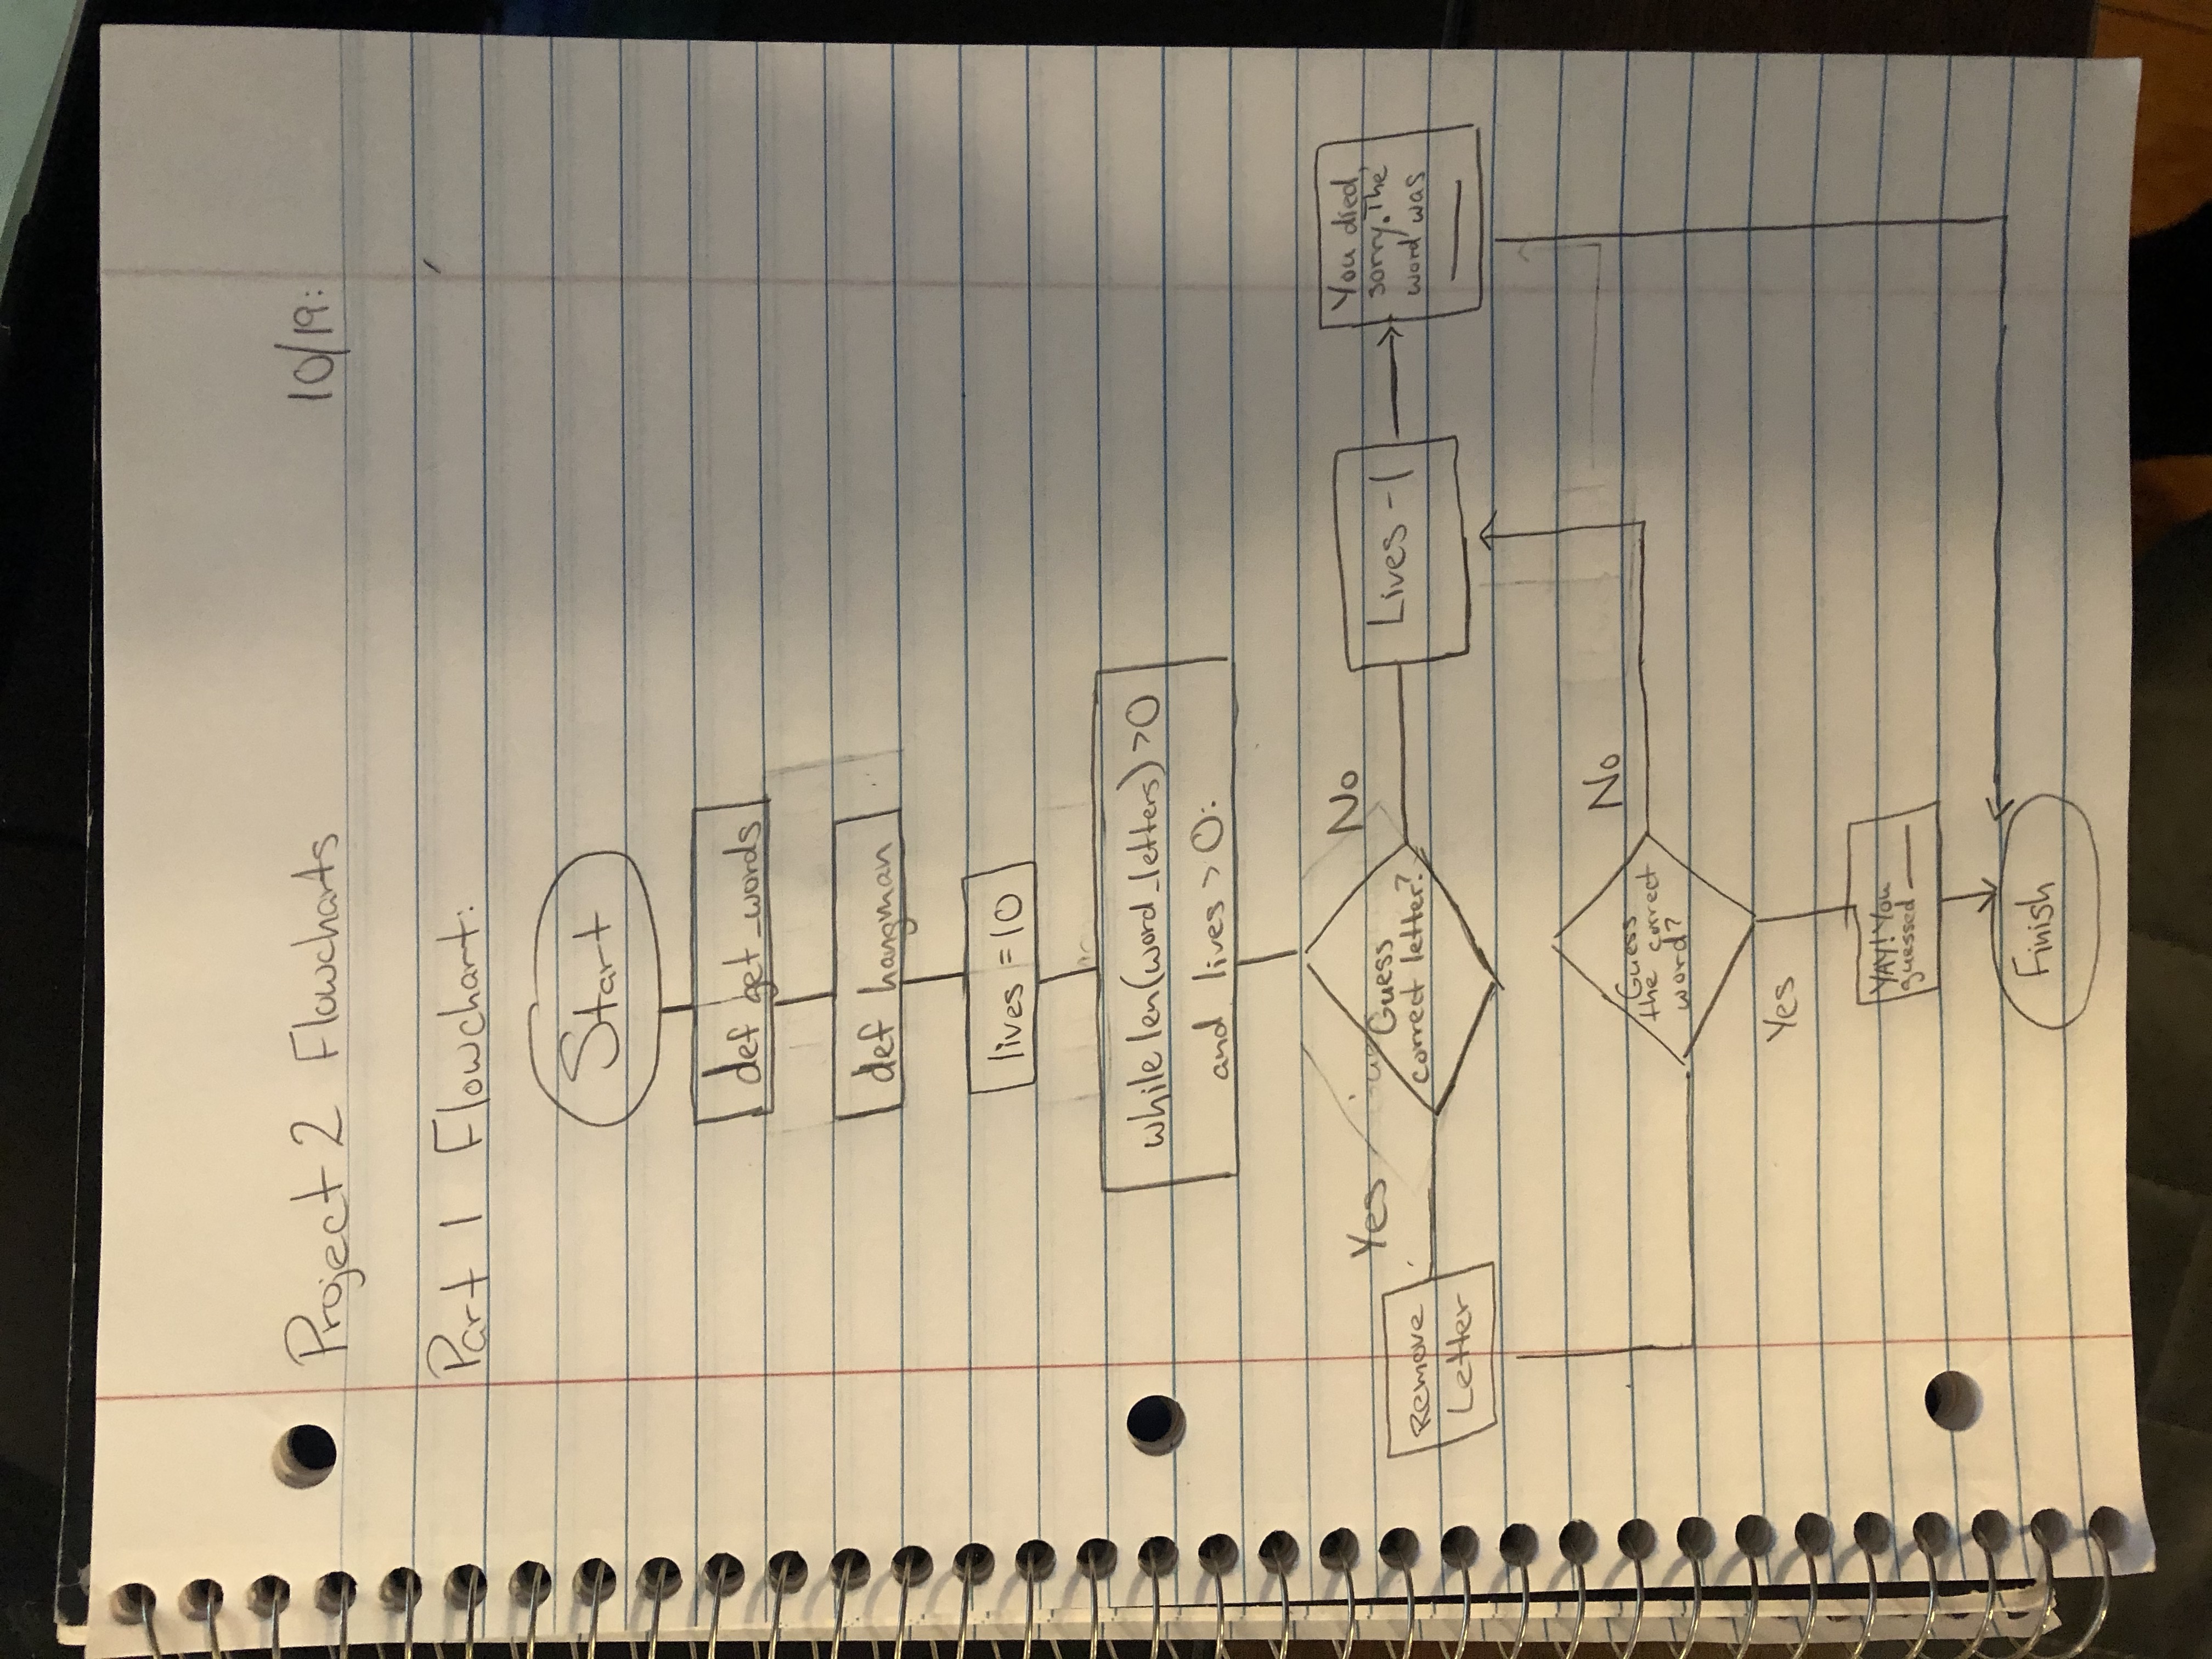 Project 2 Flowcharts 10/19:
Part 1 Flowchart:
Start
def get_words
def hangman
lives = 10
while len(word_letters) > 0
and lives > 0:
Yes
No
Guess
correct letter?
Remove
Letter
Lives -1
You died,
sorry. The
word was
No
Guess
the correct
word?
Yes
YAY! You
guessed
Finish